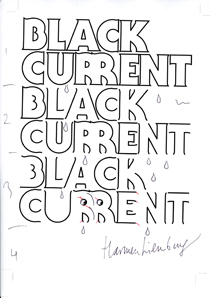 BLACK
CURRENT
1
BLACK
2
CURRENT
BLACK
3
CURRENT
4